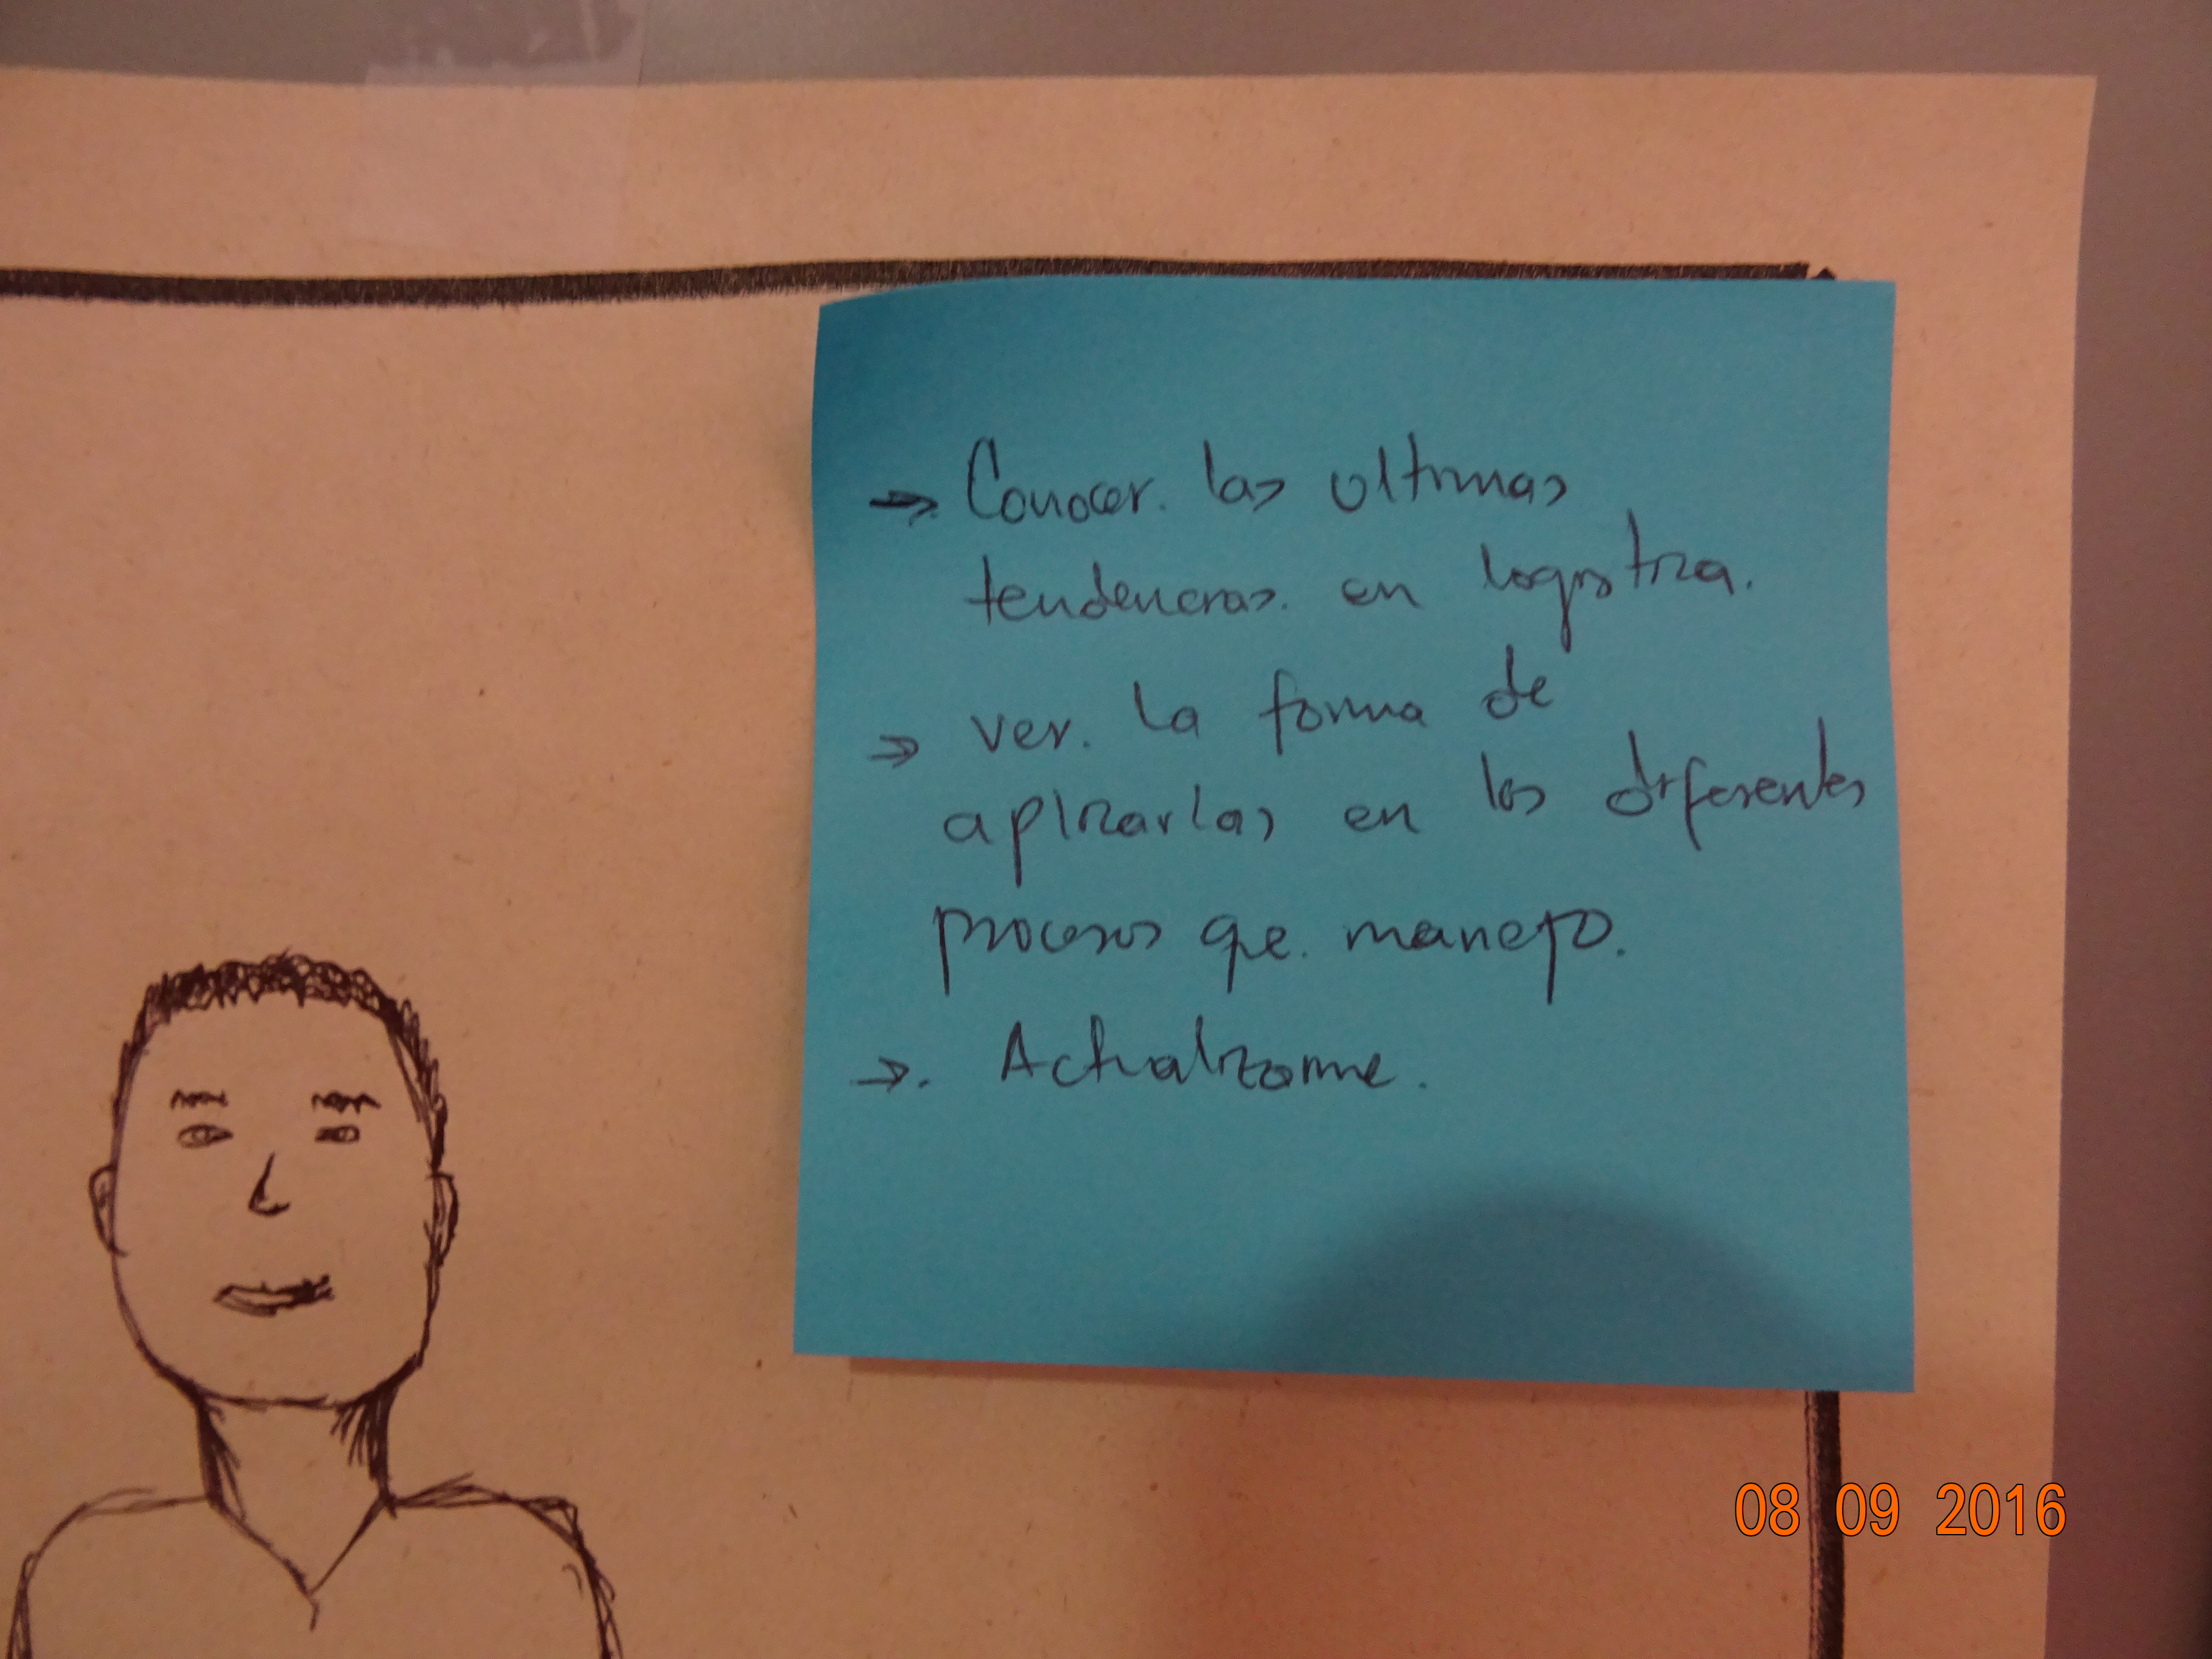 → Conocer. las ultimas
tendencias. en logistica.
→ ver. la forma de
aplicarlas en los diferentes
procesos que. manejo.
→. Actualizarme.
08 09 2016